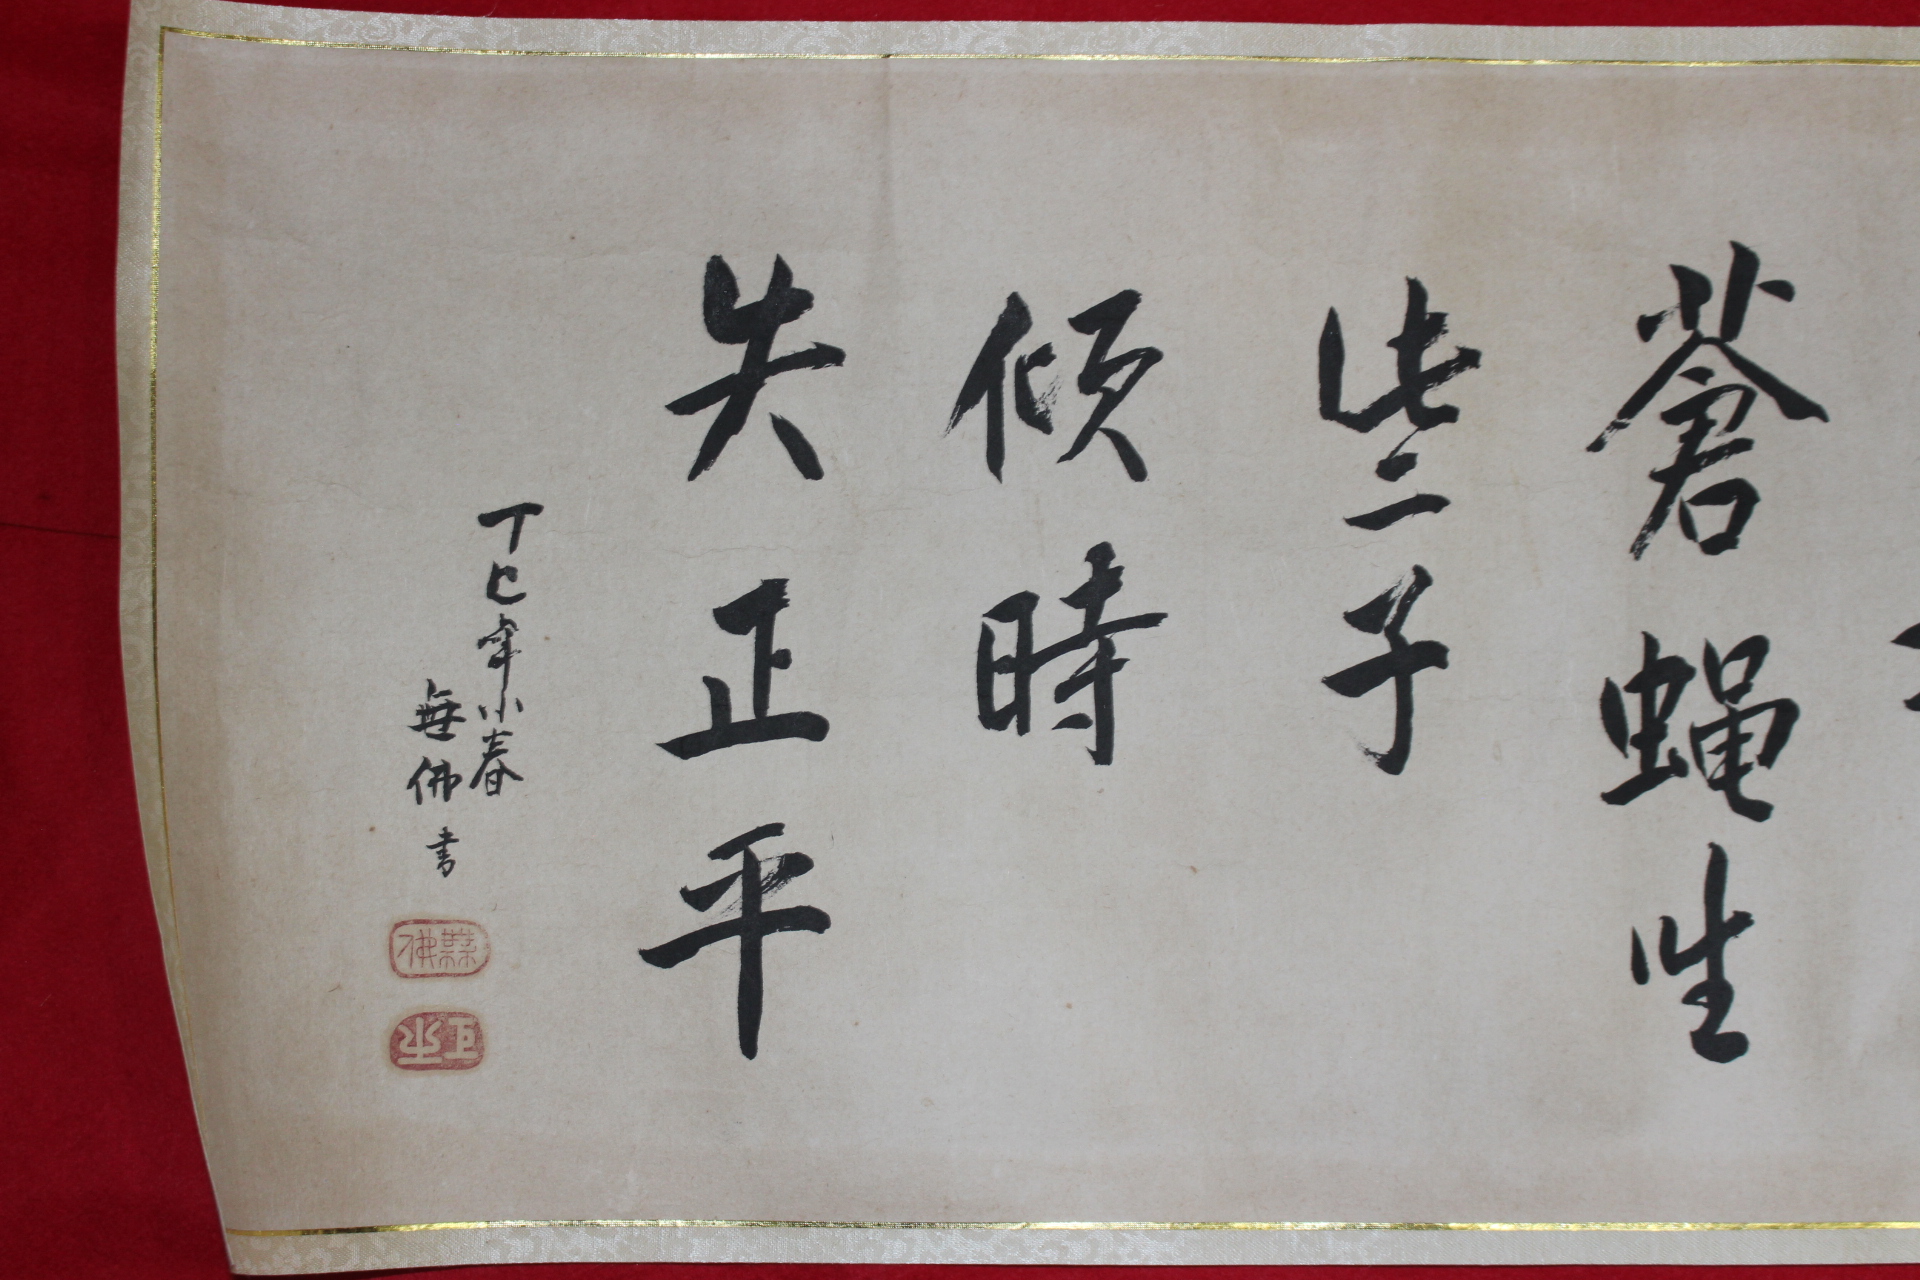 蒼蝿生
些子
傾時
失正平
丁巳年小春
無佛書
無佛